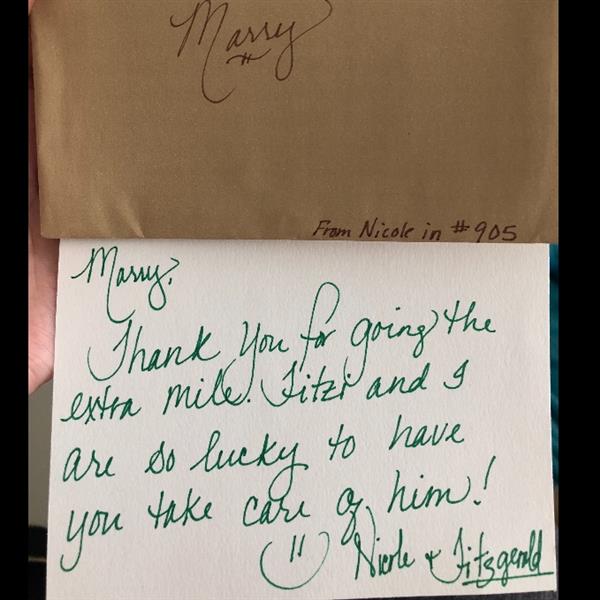 Marry
From Nicole in #905
Marry,
Thank you for going the
extra mile. Fitzi and I
are so lucky to have
you take care of him!
Nicole + Fitzgerald